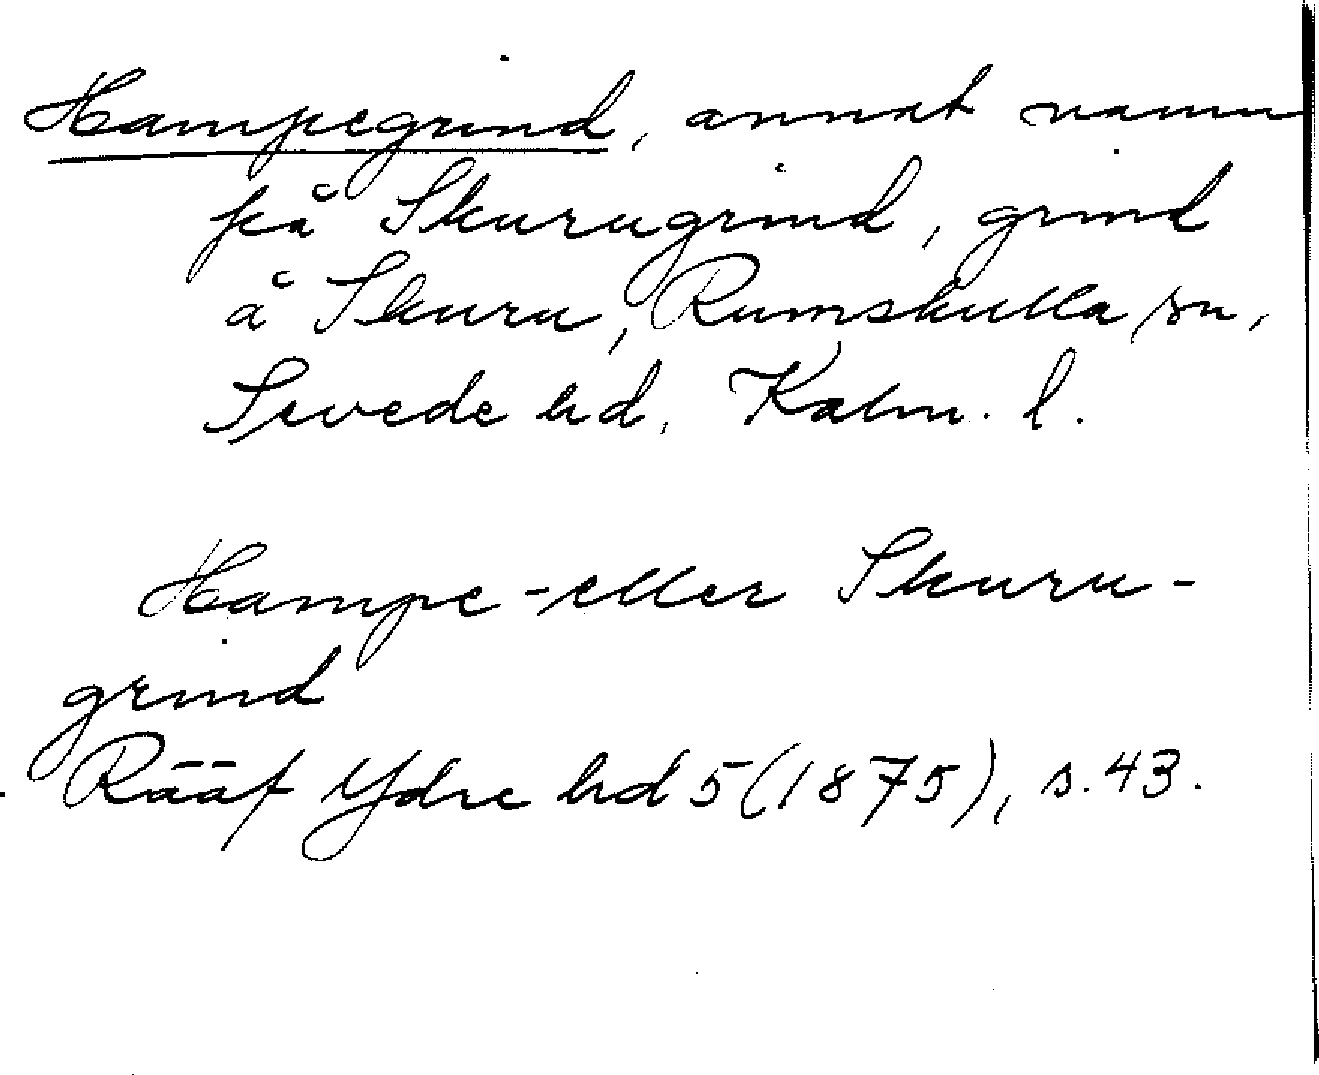 Hampegrind, annat namn
på Skurugrind, grind
å Skuru, Rumskulla sn,
Sevede hd, Kalm. l.
Hampe- eller Skuru-
grind
Rääf Ydre hd 5 (1875), s. 43.